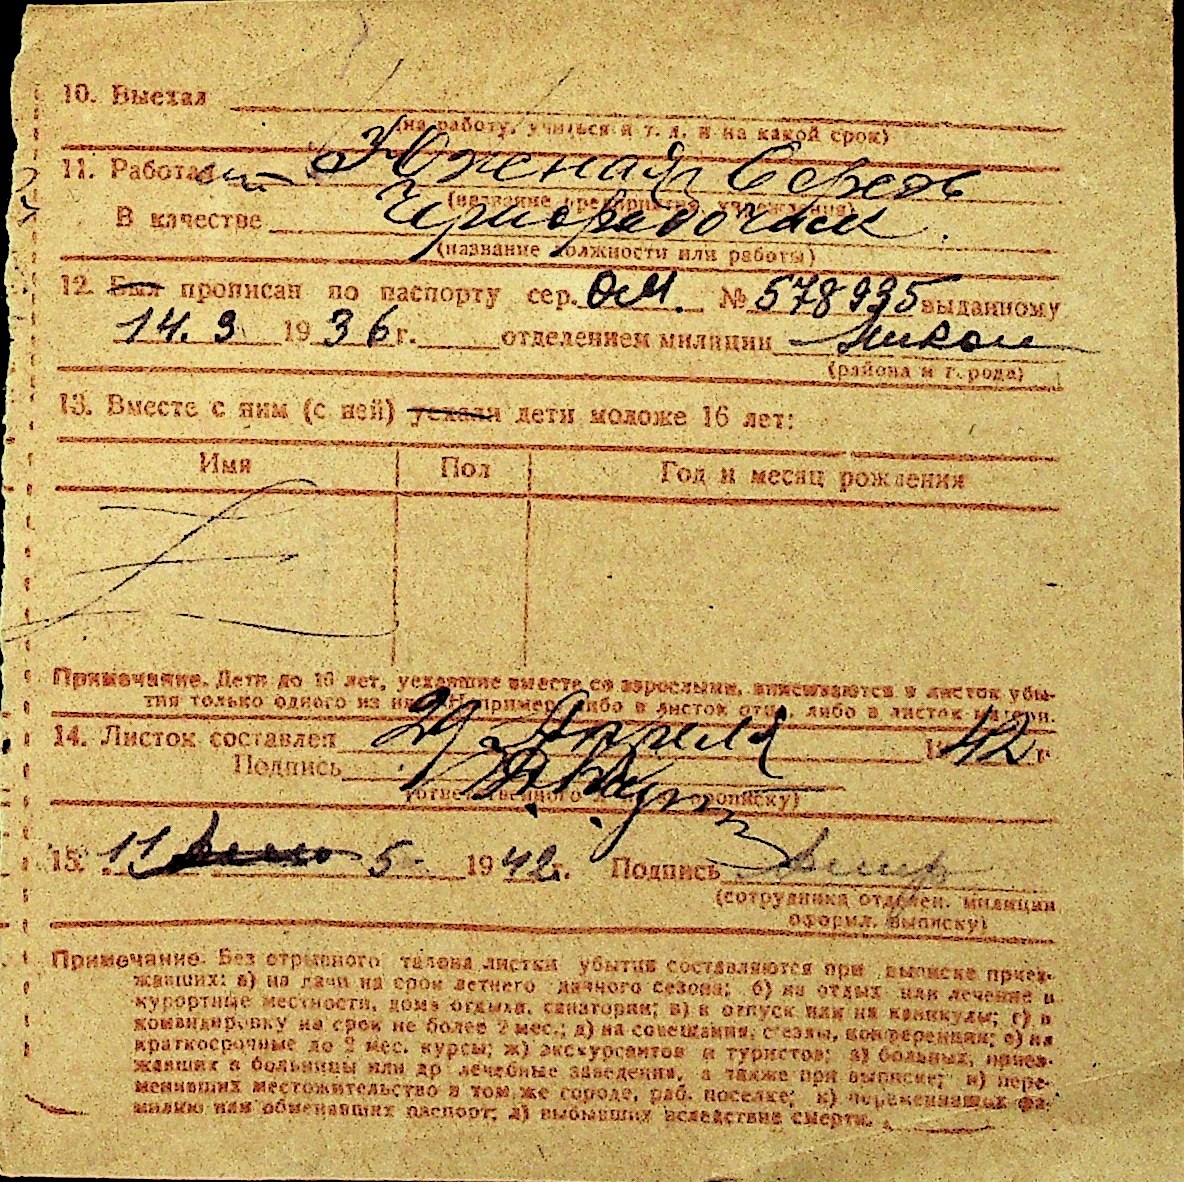 10. Выехал
(на работу, учиться и т. д. и на какой срок)
11. Работал Юженая
(название предприятия, учреждения)
В качестве Чернорабочий
(название должности или работы)
12. Был прописан по паспорту сер. ОМ. № 578935 выданному
14. 3 1936 г. отделением милиции
(района и города)
13. Вместе с ним (с ней) уехали дети моложе 16 лет:
Имя Пол Год и месяц рождения
Примечание. Дети до 16 лет, уехавшие вместе со взрослыми, вписываются в листок убы-
тия только одного из них. Например, либо в листок отца, либо в листок матери.
14. Листок составлен 29 Апреля 1942 г.
Подпись
(ответственного за прописку)
15. 11 5 1942 г. Подпись
(сотрудника отделен. милиции
оформ. выписку)
Примечание. Без отрывного талона листки убытия составляются при выписке приез-
жавших: а) на дачи на срок летнего дачного сезона; б) на отдых или лечение в
курортные местности, дома отдыха, санатории; в) в отпуск или на каникулы; г) в
командировку на срок не более 2 мес.; д) на совещания, съезды, конференции; е) на
краткосрочные до 2 мес. курсы; ж) экскурсантов и туристов; з) больных, приез-
жавших в больницы или др. лечебные заведения, а также при выписке; и) пере-
менивших местожительство в том же городе, раб. поселке; к) переменивших фа-
милию или обменявших паспорт; л) выбывших вследствие смерти.